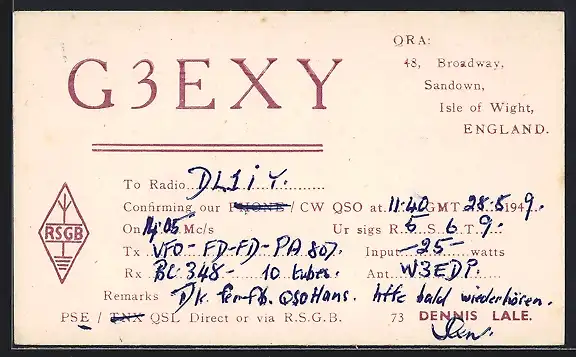 G3EXY
QRA:
48, Broadway,
Sandown,
Isle of Wight,
ENGLAND.
RSGB
To Radio DL1iY.
Confirming our PHONE / CW QSO at 11.40 GMT 28.5.1949.
On 14.05 Mc/s Ur sigs R 5 S 6 T 9.
Tx VFO-FD-FD-PA 807. Input -25- watts
Rx BC-348- 10 tubes. Ant. W3EDP.
Remarks Dk fer fb. QSO Hans. bald wiederhören.
PSE / TNX QSL Direct or via R.S.G.B. 73 DENNIS LALE.